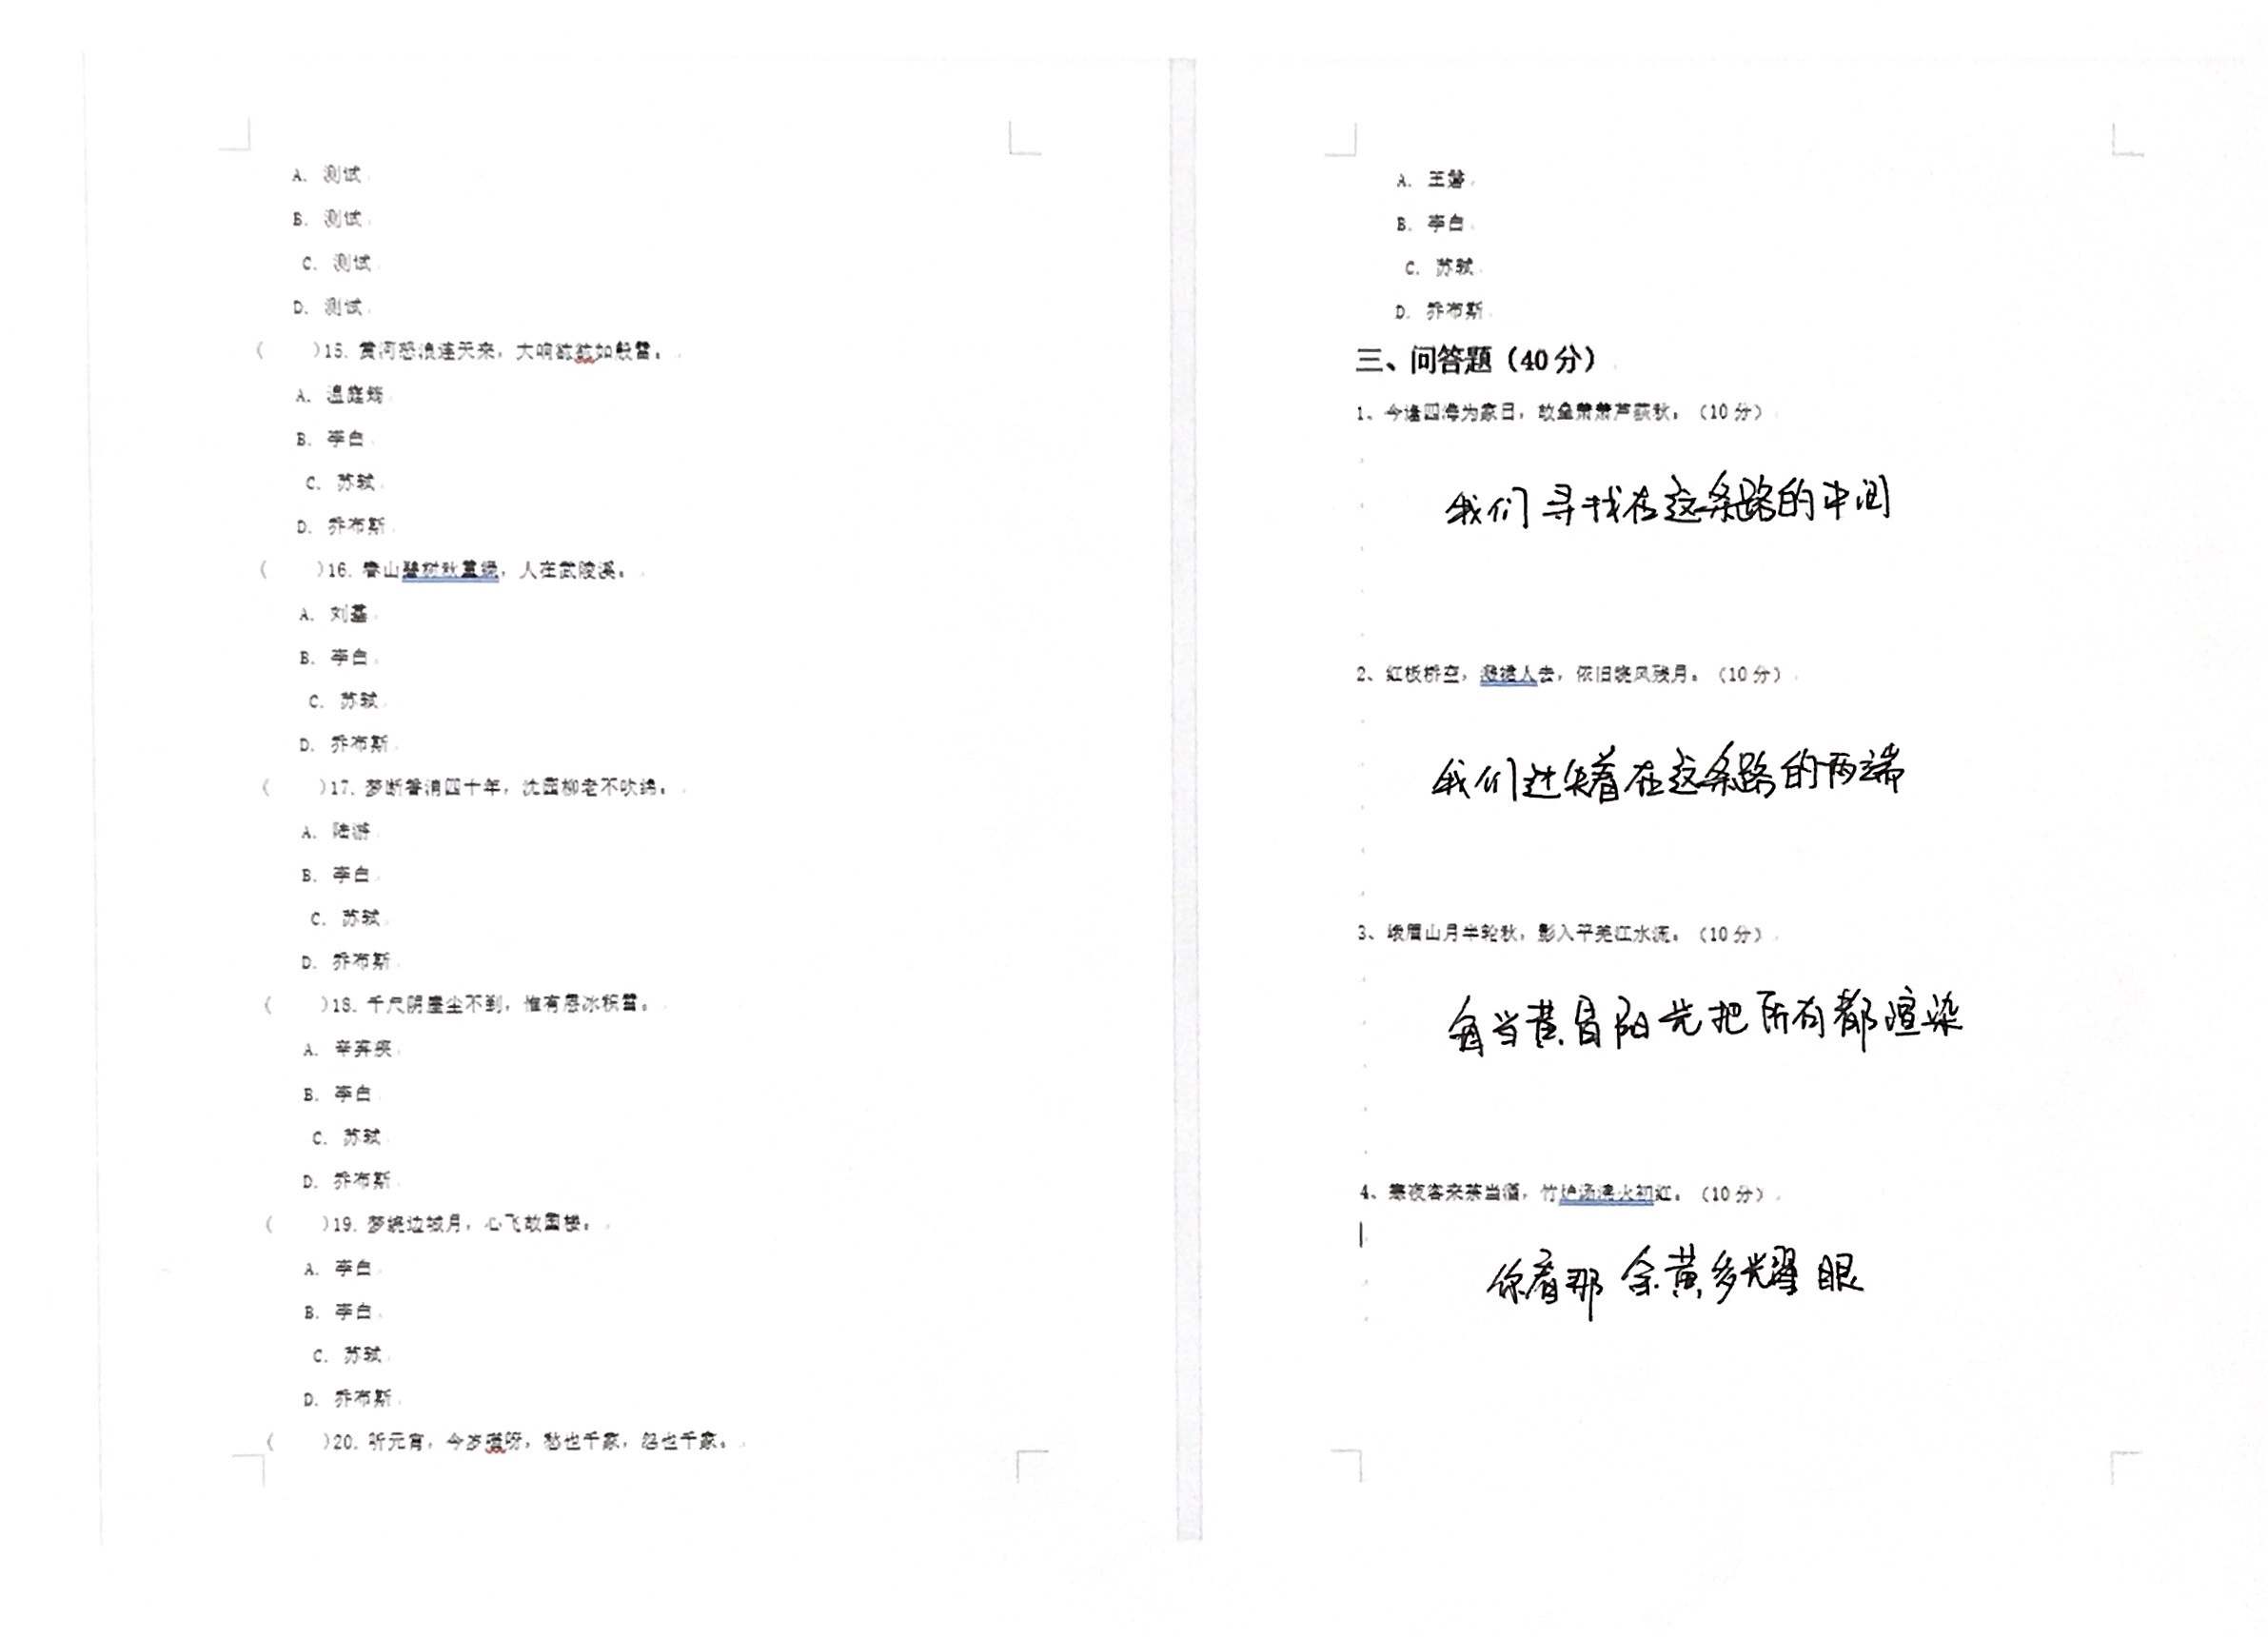 A. 测试
B. 测试
C. 测试
D. 测试
( )15. 黄河怒浪连天来，大响谹谹如殷雷。
A. 温庭筠
B. 李白
C. 苏轼
D. 乔布斯
( )16. 春山碧树秋重绿，人在武陵溪。
A. 刘基
B. 李白
C. 苏轼
D. 乔布斯
( )17. 梦断香消四十年，沈园柳老不吹绵。
A. 陆游
B. 李白
C. 苏轼
D. 乔布斯
( )18. 千尺阴崖尘不到，惟有层冰积雪。
A. 辛弃疾
B. 李白
C. 苏轼
D. 乔布斯
( )19. 梦绕边城月，心飞故国楼。
A. 李白
B. 李白
C. 苏轼
D. 乔布斯
( )20. 听元宵，今岁嗟呀，愁也千家，怨也千家。
A. 王磐
B. 李白
C. 苏轼
D. 乔布斯
三、问答题（40分）
1、今逢四海为家日，故垒萧萧芦荻秋。（10分）
我们寻找在这条路的中间
2、红板桥空，溅裙人去，依旧晓风残月。（10分）
我们迷失着在这条路的两端
3、峨眉山月半轮秋，影入平羌江水流。（10分）
每当黄昏阳光把所有都渲染
4、寒夜客来茶当酒，竹炉汤沸火初红。（10分）
你看那金黄多耀眼